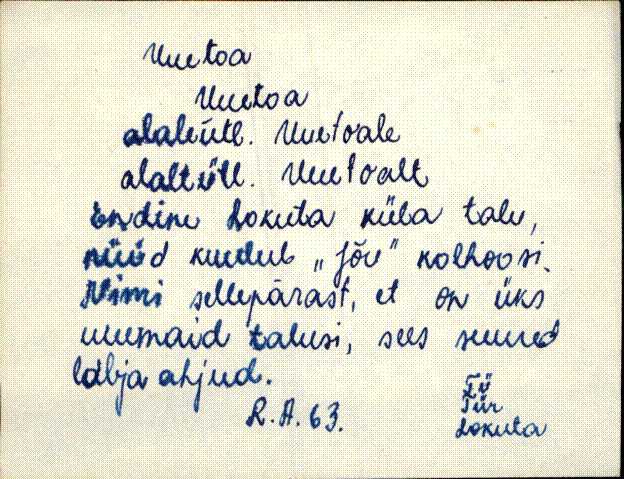 Uuetoa
Uuetoa
alaleütl. Uuetoale
alaltütl. Uuetoalt
Endine Lokuta küla talu,
nüüd kuulub „Jõu" kolhoosi.
Nimi sellepärast, et on üks
uuemaid talusi, sees suured
läbja ahjud.
R.A. 63.
Tür
Lokuta